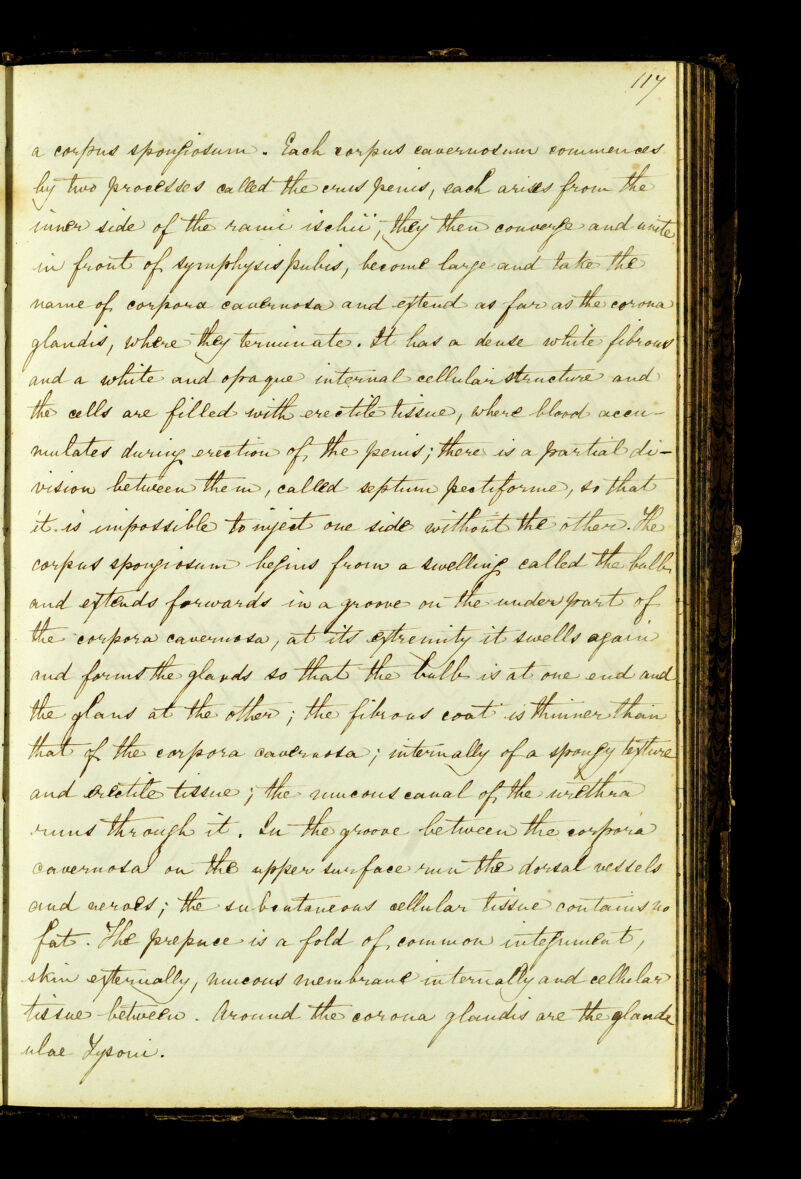 117
a corpus spongiosum. Each corpus cavernosum commences
by two processes called the crus penis, each arises from the
inner side of the rami ischii, they then converge and unite
in front of symphysis pubis, become large and take the
name of corpora cavernosa and extend as far as the corona
glandis, where they terminate. It has a dense white fibrous
and a white and opaque internal cellular structure and
the cells are filled with erectile tissue, where blood accu-
mulates during erection of the penis; there is a partial di-
vision between them, called septum pectiforme, so that
it is impossible to inject one side without the other. The
corpus spongiosum begins from a swelling called the bulb
and extends forwards in a groove on the under part of
the corpora cavernosa, at its extremity it swells again
and forms the glands so that the bulb is at one end and
the glans at the other; the fibrous coat is thinner than
that of the corpora cavernosa; internally of a spongy texture
and erectile tissue; the mucous canal of the urethra
runs through it. In the groove between the corpora
cavernosa on the upper surface run the dorsal vessels
and nerves; the subcutaneous cellular tissue contains no
fat. The prepuce is a fold of common integument,
skin externally, mucous membrane internally and cellular
tissue between. Around the corona glandis are the glande
ulae Tysoni.